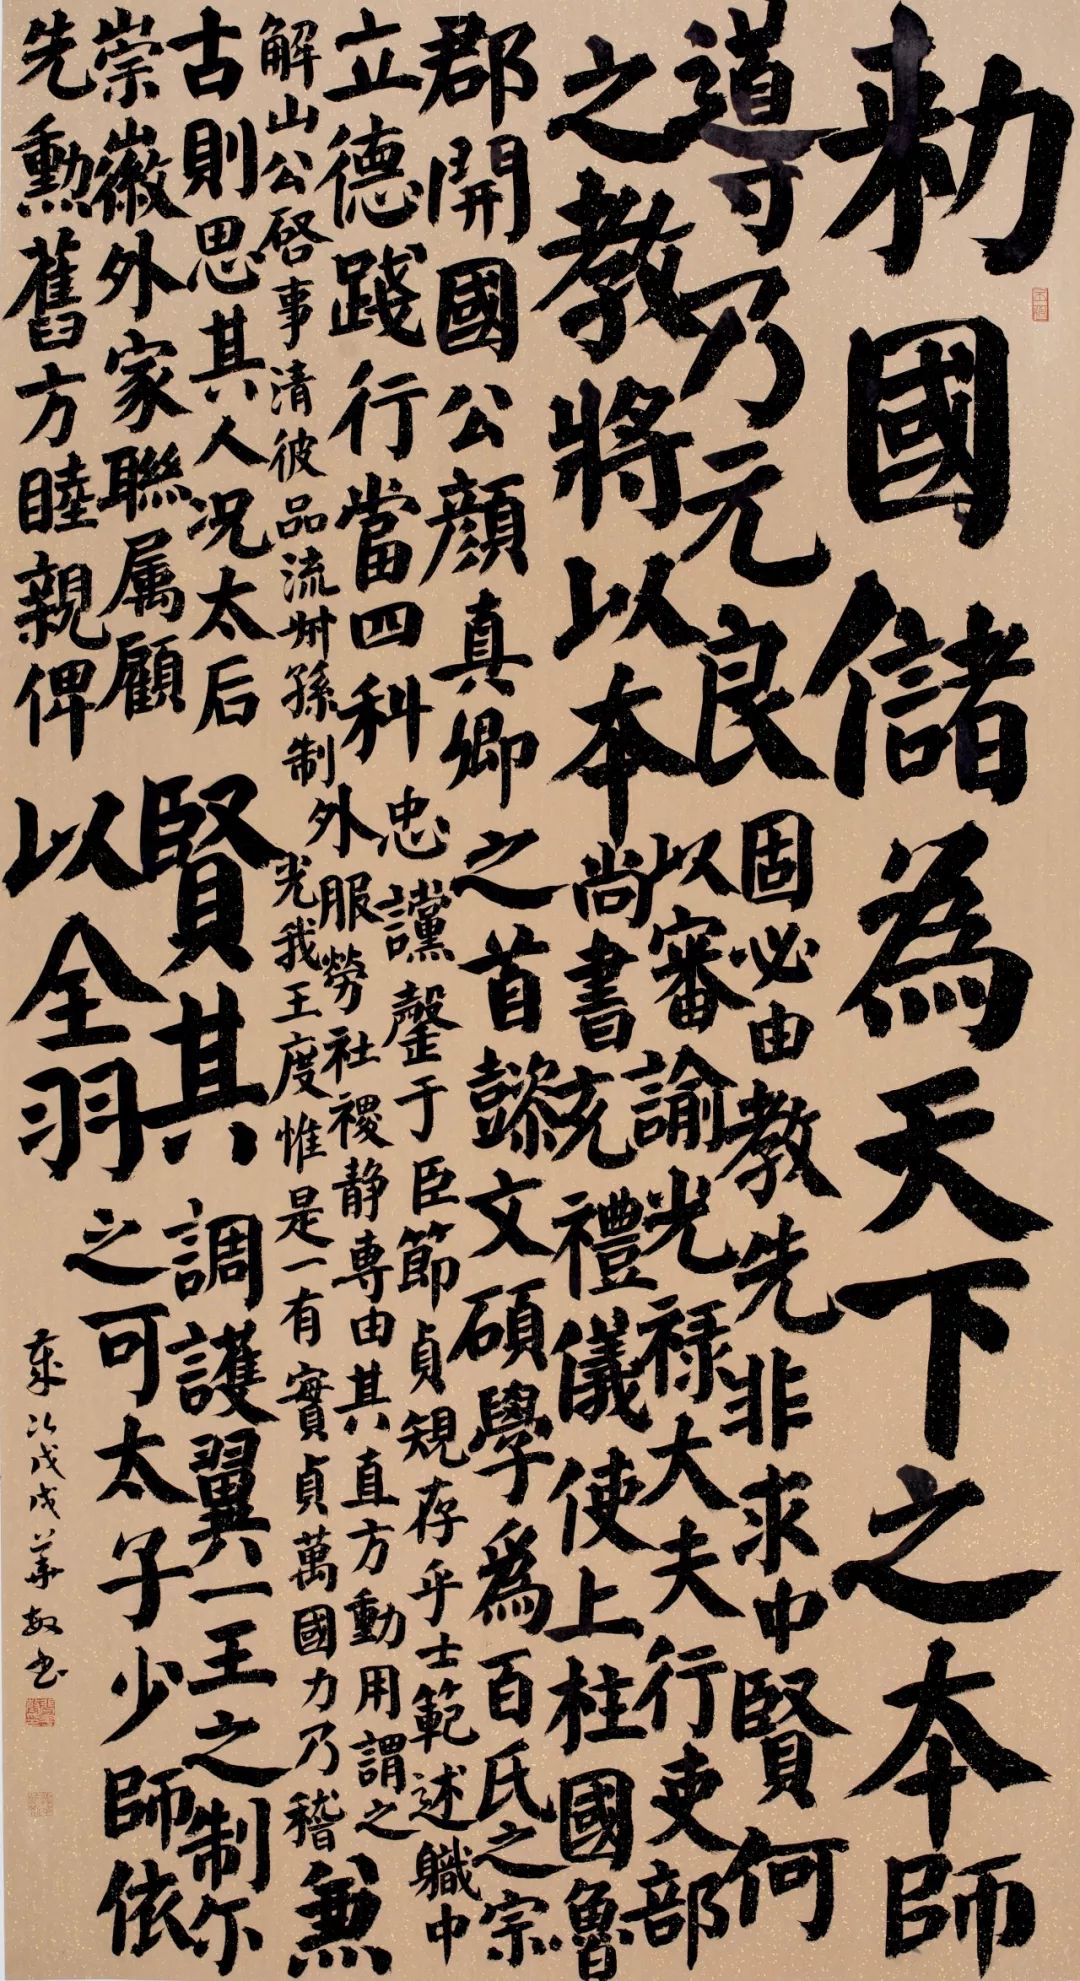 勑國儲為天下之本師
導乃元良
之教將以本
固必由教先非求中賢何
以審諭光禄大夫行吏部
尚書充禮儀使上柱國魯
郡開國公顏真卿
立德踐行當四科
之首懿文碩學為百氏之宗
忠讜罄于臣節貞規存乎士範述職中
外服勞社稷静專由其直方動用謂之
解山公啓事清彼品流叔孫制
光我王度惟是一有實貞萬國力乃稽
古則思其人况太后
崇徽外家聯属顧
先勳舊方睦親俾
賢其
以全羽
兼
調護翼一王之制尔
之可太子少師依
歲次戊戌華敏书